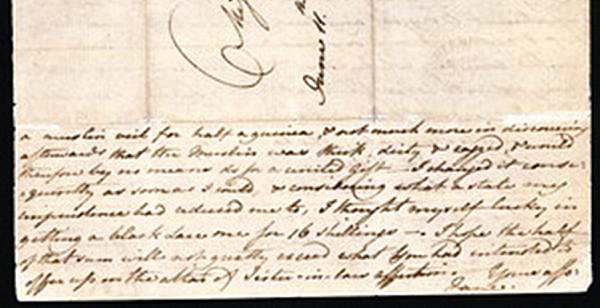 June 11.
a muslin veil for half a guinea, & not much more in discovering
afterwards that the Muslin was thick, dirty & ragged, & would
therefore by no means do for a united Gift — I changed it conse:
:quently as soon as I could, & considering what a state my
imprudence had reduced me to, I thought myself lucky in
getting a black Lace one for 16 shillings —. I hope the half
of that sum will not greatly exceed what You had intended to
offer up on the altar of Sister-in-law affection. Yours affec:
Jane.